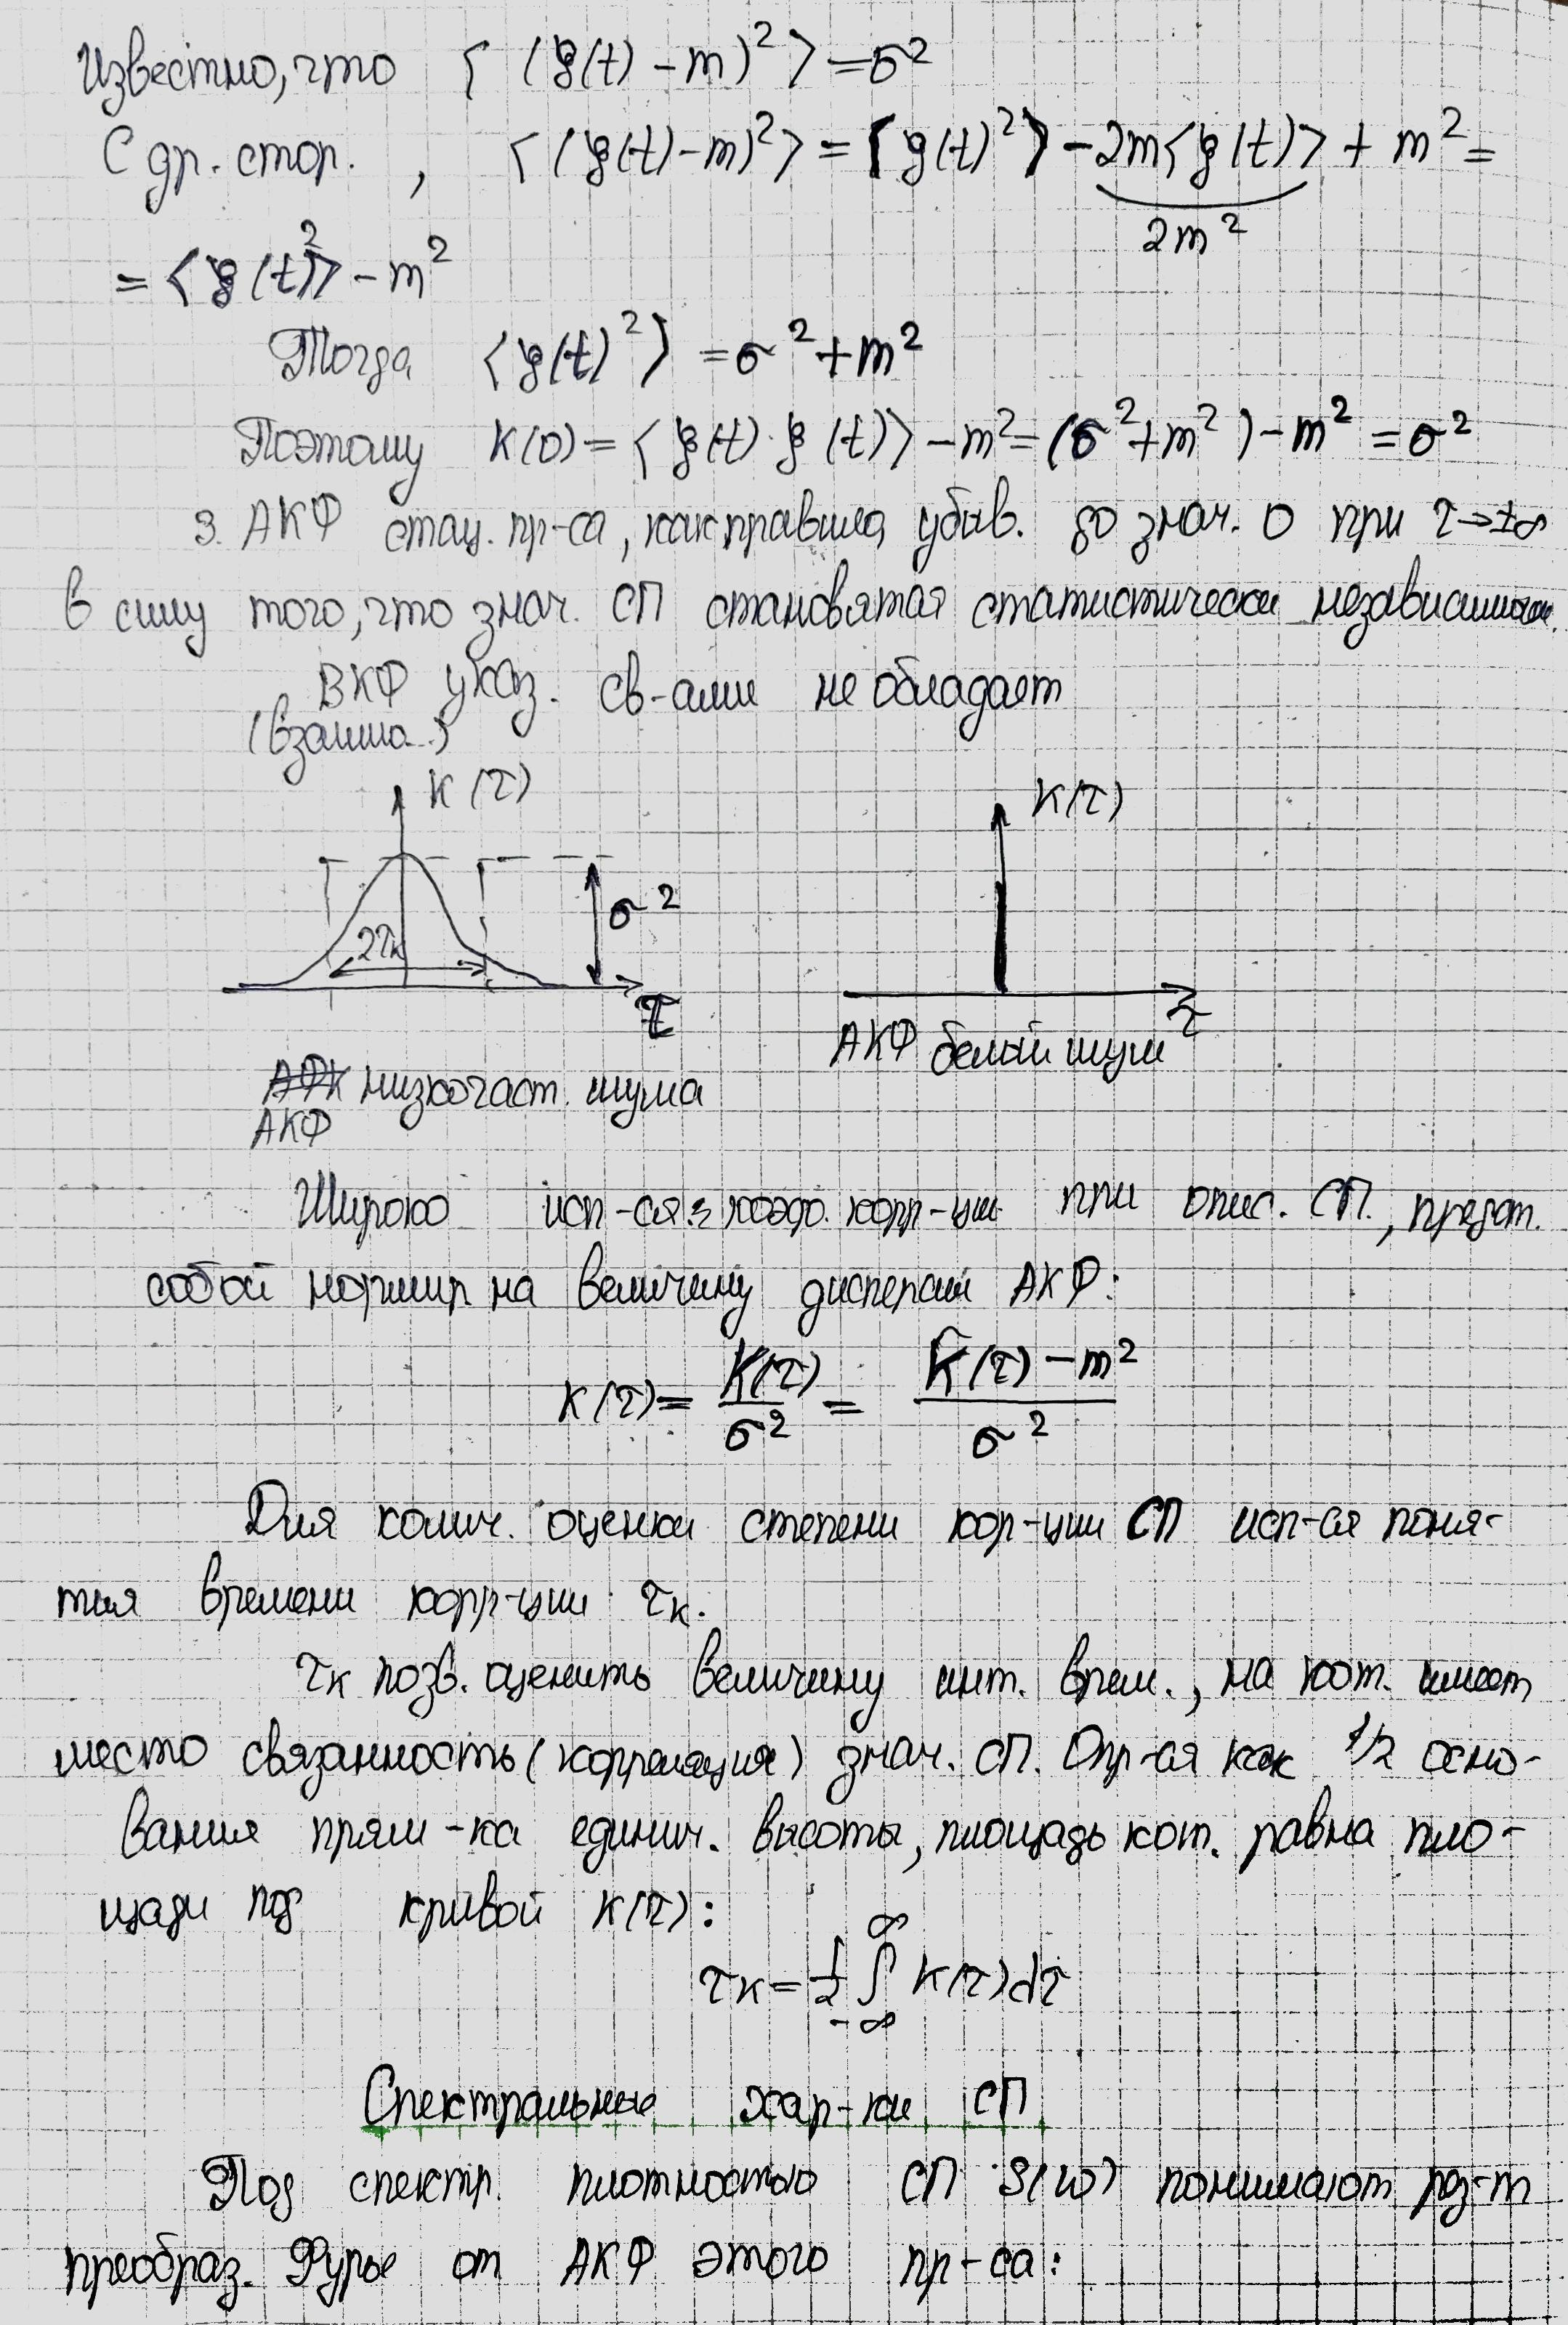 Известно, что ⟨(ξ(t) - m)²⟩ = σ²
С др. стор., ⟨(ξ(t) - m)²⟩ = ⟨ξ(t)²⟩ - 2m⟨ξ(t)⟩ + m² =
2m²
= ⟨ξ(t)²⟩ - m²
Тогда ⟨ξ(t)²⟩ = σ² + m²
Поэтому K(0) = ⟨ξ(t)·ξ(t)⟩ - m² = (σ² + m²) - m² = σ²
3. АКФ стац. пр-са, как правило, убыв. до знач. 0 при τ→±∞
в силу того, что знач. СП становятся статистически независимыми.
ВКФ указ. св-ами не обладает
(взаимн.)
K(τ)
σ²
2τк
τ
АФК низкочаст. шума
АКФ
K(τ)
τ
АКФ белый шум
Широко исп-ся коэф. корр-ции при опис. СП, предст.
собой нормир на величину дисперсии АКФ:
K(τ) = K(τ)/σ² = (K̂(τ) - m²)/σ²
Для колич. оценки степени кор-ции СП исп-ся поня-
тия времени корр-ции τк.
τк позв. оценить величину инт. врем., на кот. имеет
место связанность (корреляция) знач. СП. Опр-ся как 1/2 осно-
вания прям-ка единич. высоты, площадь кот. равна пло-
щади под кривой K(τ):
τк = 1/2 ∫_{-∞}^{∞} K(τ)dτ
Спектральные хар-ки СП
Под спектр. плотностью СП S(ω) понимают рез-т
преобраз. Фурье от АКФ этого пр-са: